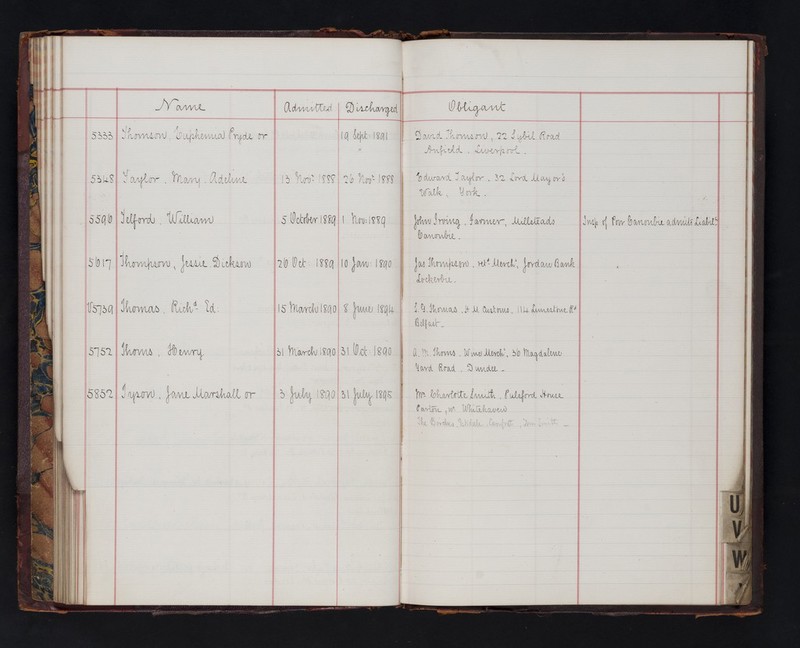 Name Admitted Discharged Obligant
5333 Thomson, Euphemia Pryde or 19 Sept. 1891 David Thomson, 22 Sybil Road
Anfield. Liverpool.
5348 Taylor. Mary. Adeline 13 Novr. 1888 26 Novr. 1888 Edward Taylor. 32 Lord Mayor's
Walk. York.
5596 Telford. William 5 October 1889 1 Nov. 1889 John Irving. Farmer, Millsteads Insp of Poor Canonbie admits Liabilty
Canonbie.
5617 Thompson, Jessie Dickson 26 Oct. 1889 10 Jan. 1890 Jas Thompson. Merch', Jordan Bank
Lockerbie.
5739 Thomas. Richd. Ed. 15 March 1890 8 June 1894 Thomas. H.M. Customs. 114 Limestone Rd
Belfast.
5752 Thoms. Henry 31 March 1890 31 Oct. 1890 Thoms. Wine Merch'. 36 Magdalene
Yard Road. Dundee.
5852 Tyson. Jane Marshall or 3 July 1890 31 July 1895 Mrs Charlotte Smith. Pulsford House
Parton, nr. Whitehaven
The
U
V
W